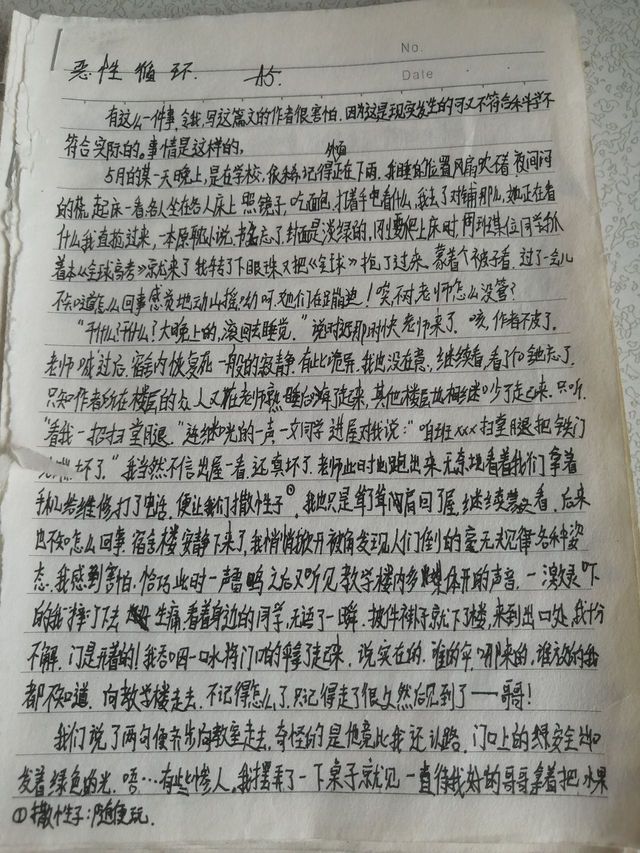 No.
恶性循环.
Date
有这么一件事,令我,写这篇文的作者很害怕.因为这是现实发生的可又不符合科学不
符合实际的。事情是这样的,
5月的某一天晚上,是在学校,依稀记得正在下雨,我睡的位置风扇吹着 夜间闷
的慌 起床一看各人坐在各人床上 照镜子,吃面包,打着手电看什么,我去了对铺那儿,她正在看
什么我直抢过来,一本原耽小说,书名忘了,封面是浅绿的,刚要爬上床时,同班某位同学扒
着本《全球高考》就来了 我转了下眼珠又把《全球》抢了过来.蒙着个被子看.过了一会儿
不知道怎么回事感觉地动山摇 呦呵她们在蹦迪!哎不对老师怎么没管?
"干什么!干什么!大晚上的,滚回去睡觉."说时迟那时快老师来了.咳,作者不皮了.
老师喊过后 宿舍内恢复死一般的寂静 有些诡异.我也没在意,继续看,看了几 忘了.
只知作者所在楼层的众人又在老师熟睡后嗨了起来,其他楼层也相继吵了起来.只听.
"看我一招扫堂腿."连 的一声 一女同学进屋对我说:"咱班xxx扫堂腿把铁门
坏了."我当然不信出屋一看,还真坏了.老师此时也跑出来.无奈地看着我们拿着
手机给维修打了电话.便让我们撒性子①,我也只是耸了耸肩回了屋,继续 看.后来
也不知怎么回事 宿舍楼安静下来了,我悄悄掀开被角发现人们倒的毫无规律各种姿
态.我感到害怕.恰巧此时一声雷鸣之后又听见教学楼内多媒体开的声音.一激灵吓
的我摔了下去 生痛.看着身边的同学,无语了一瞬.披件褂子就下了楼,来到出口处,我十分
不解.门是开着的!我吞咽一口水将门口的伞拿了起来.说实在的.谁的伞.哪来的,谁放的我
都不知道.向教学楼走去.不记得怎么了.只记得走了很久然后见到了——哥哥!
我们说了两句便齐步向教室走去,奇怪的是他竟比我还认路.门口上的绿安全
发着绿色的光.唔…有些惨人,我摆弄了一下桌子就见一直待我好的哥哥拿着把水果
①撒性子:随便玩.